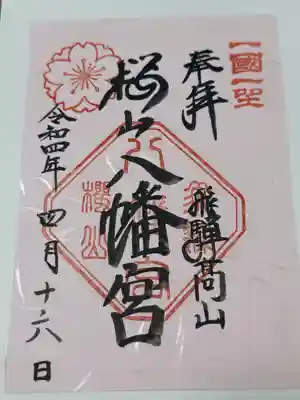 一國一社
奉拝
飛騨髙山
桜山八幡宮
令和四年四月十六日